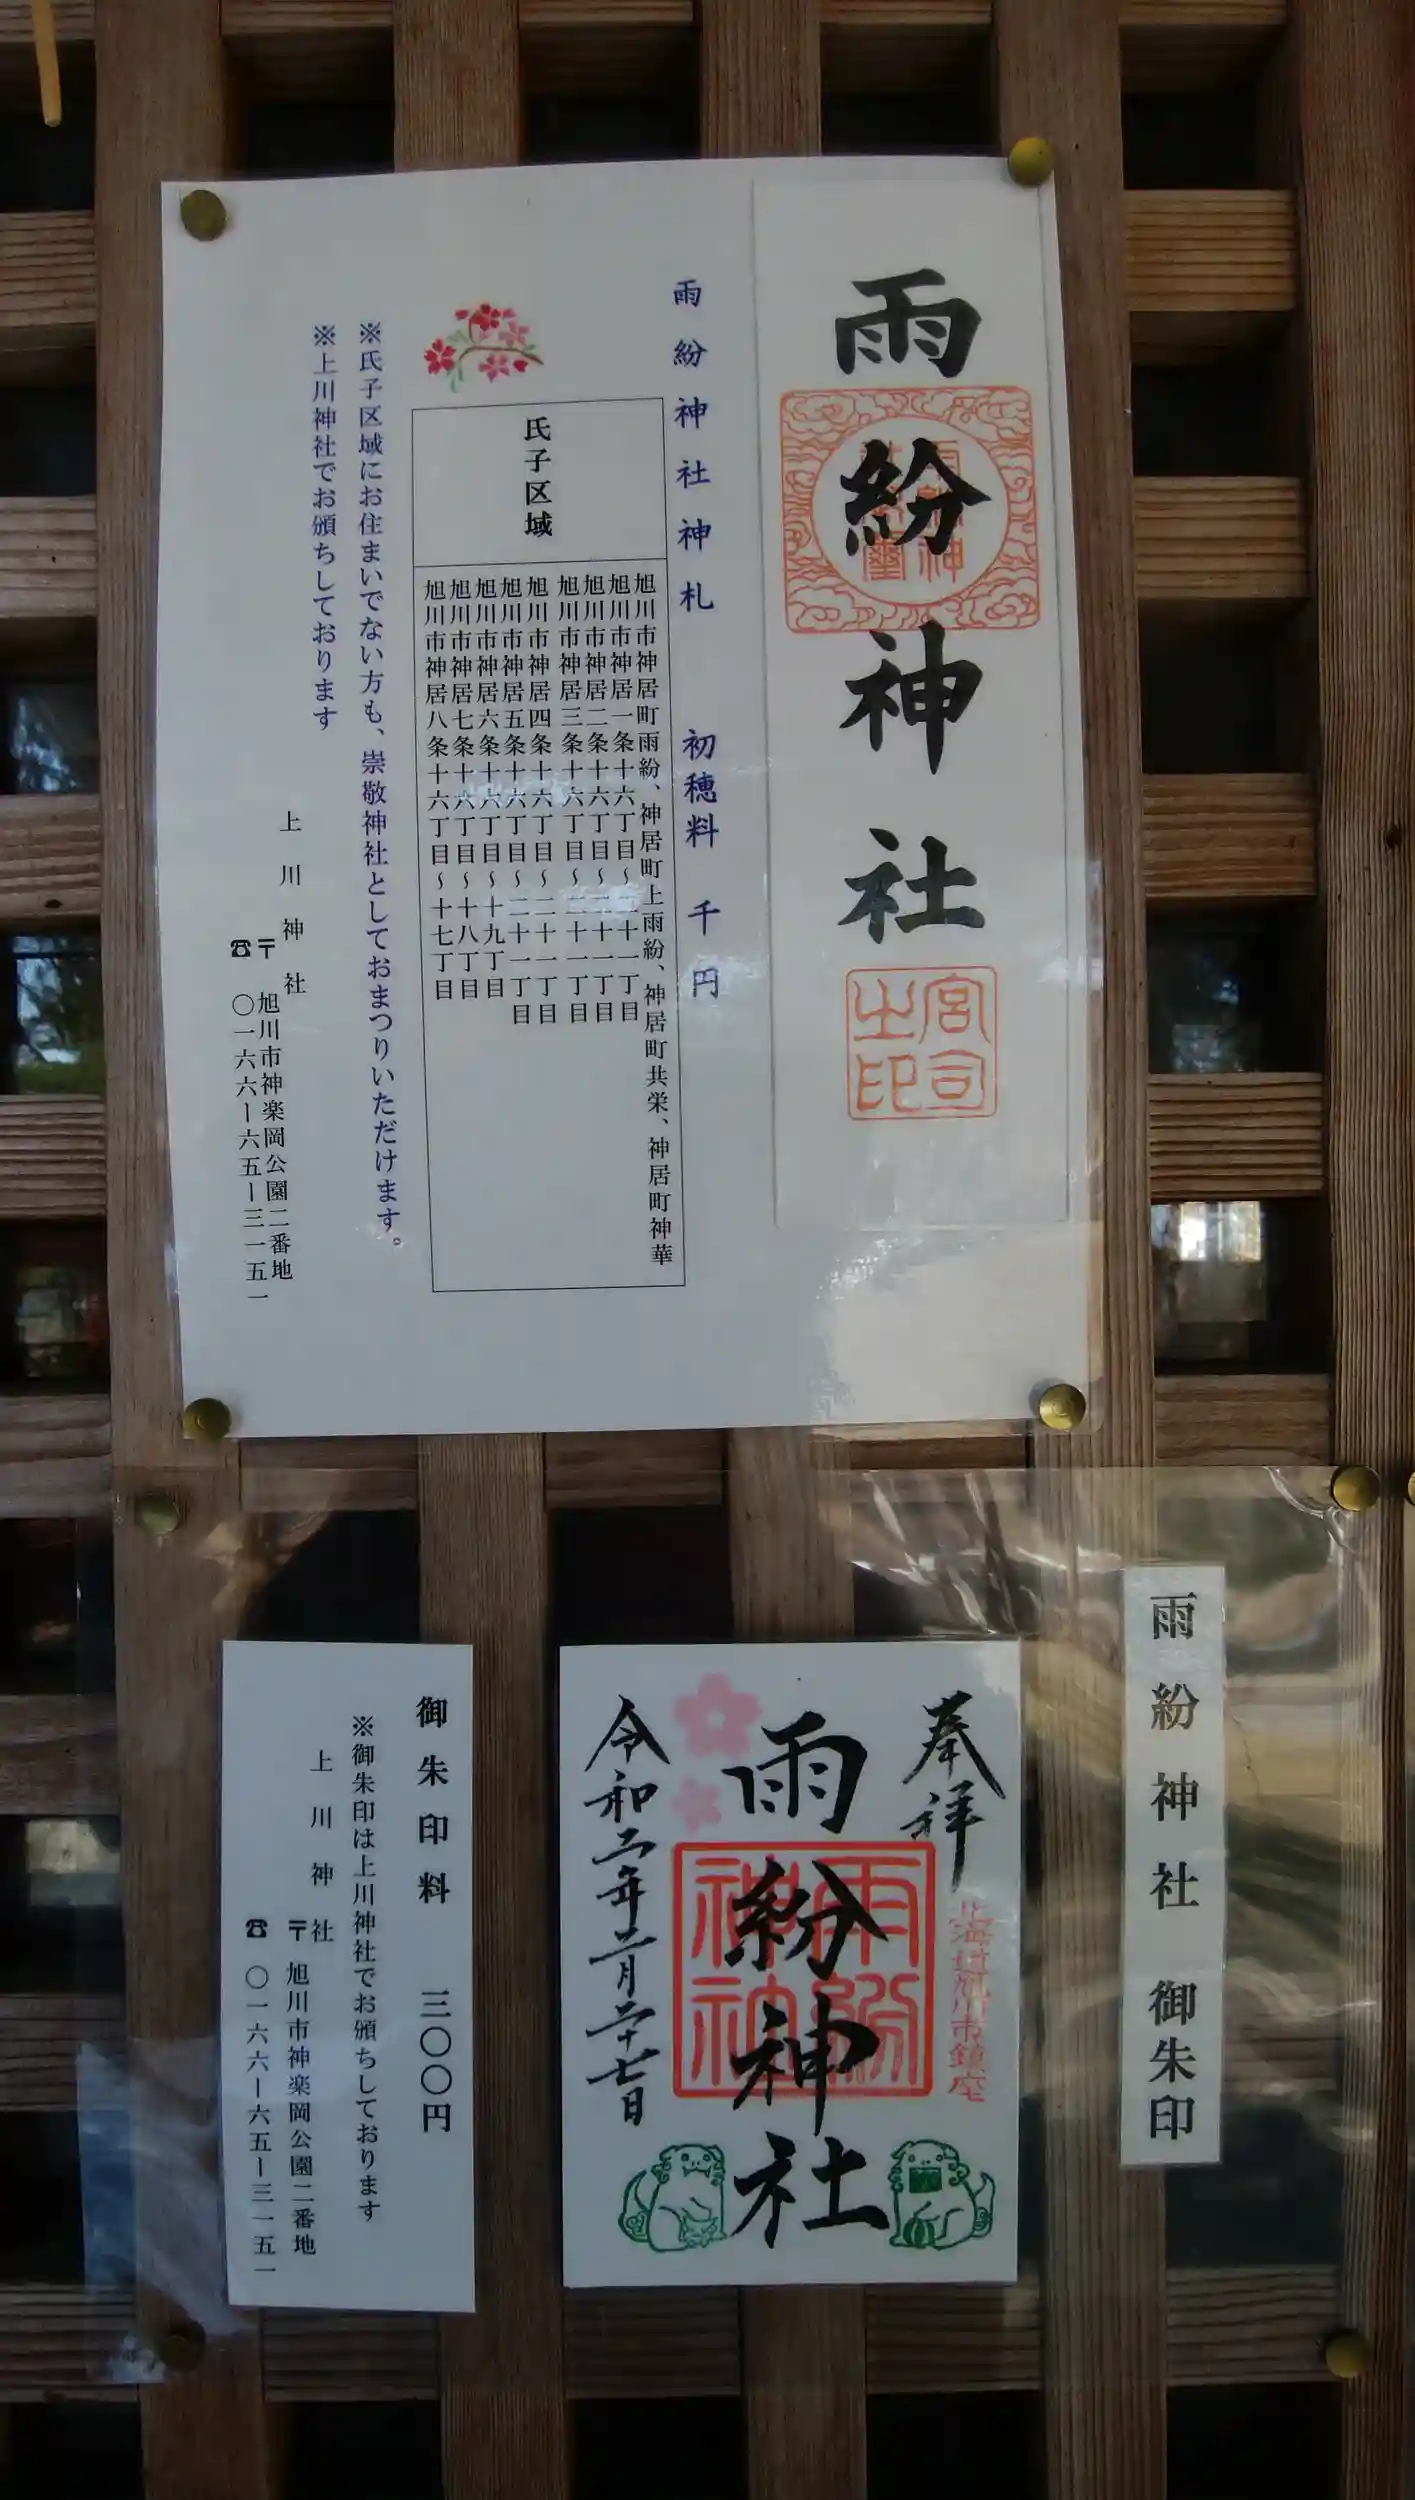 雨紛神社
宮司之印
雨紛神社神札 初穂料 千円
氏子区域
旭川市神居町雨紛、神居町上雨紛、神居町共栄、神居町神華
旭川市神居一条十六丁目～二十一丁目
旭川市神居二条十六丁目～二十一丁目
旭川市神居三条十六丁目～二十一丁目
旭川市神居四条十六丁目～二十一丁目
旭川市神居五条十六丁目～二十一丁目
旭川市神居六条十六丁目～十九丁目
旭川市神居七条十六丁目～十八丁目
旭川市神居八条十六丁目～十七丁目
※氏子区域にお住まいでない方も、崇敬神社としておまつりいただけます。
※上川神社でお頒ちしております
上川神社
〒 旭川市神楽岡公園二番地
☎ 〇一六六ー六五ー三一五一
雨紛神社 御朱印
奉拝
北海道旭川市鎮座
雨紛神社
雨紛神社
令和二年二月二十七日
御朱印料 三〇〇円
※御朱印は上川神社でお頒ちしております
上川神社
〒 旭川市神楽岡公園二番地
☎ 〇一六六ー六五ー三一五一